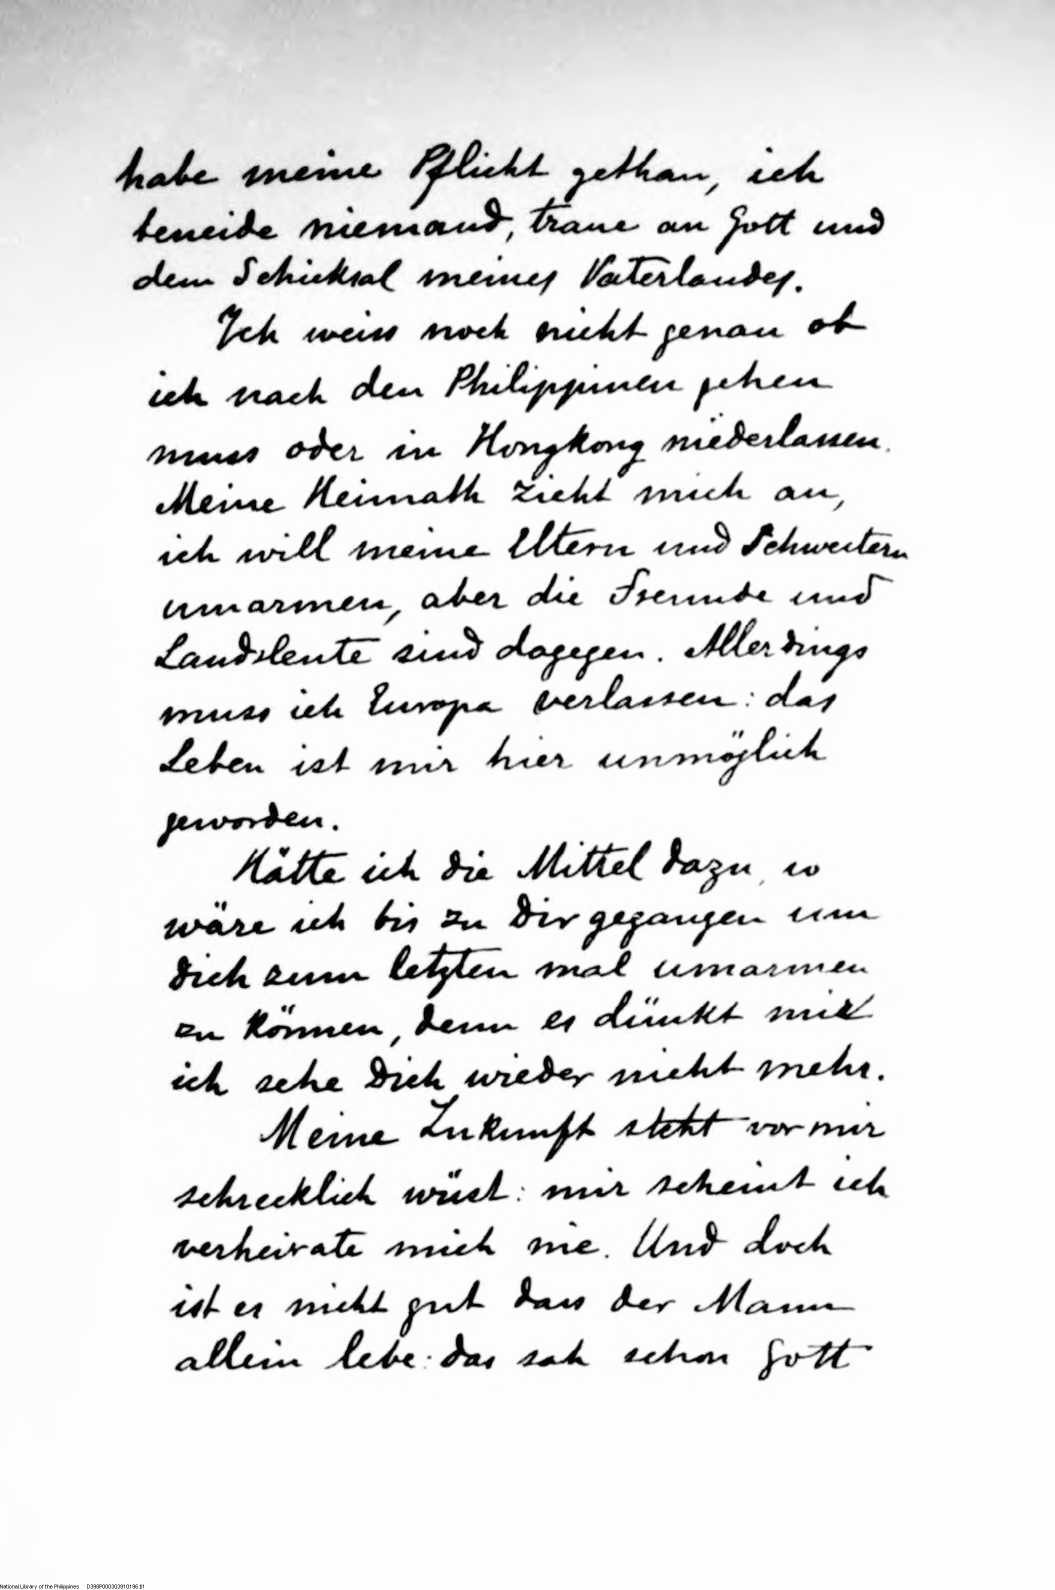 habe meine Pflicht gethan, ich
beneide niemand, traue an Gott und
dem Schicksal meines Vaterlandes.
Ich weiss noch nicht genau ob
ich nach den Philippinen gehen
muss oder in Hongkong niederlassen.
Meine Heimath zieht mich an,
ich will meine Eltern und Schwestern
umarmen, aber die Freunde und
Landsleute sind dagegen. Allerdings
muss ich Europa verlassen: das
Leben ist mir hier unmöglich
geworden.
Hätte ich die Mittel dazu, so
wäre ich bis zu Dir gegangen um
Dich zum letzten mal umarmen
zu können, denn es dünkt mir
ich sehe Dich wieder nicht mehr.
Meine Zukunft steht vor mir
schrecklich wüst: mir scheint ich
verheirate mich nie. Und doch
ist es nicht gut dass der Mann
allein lebe: das sah schon Gott
National Library of the Philippines D398P000303910196.tif